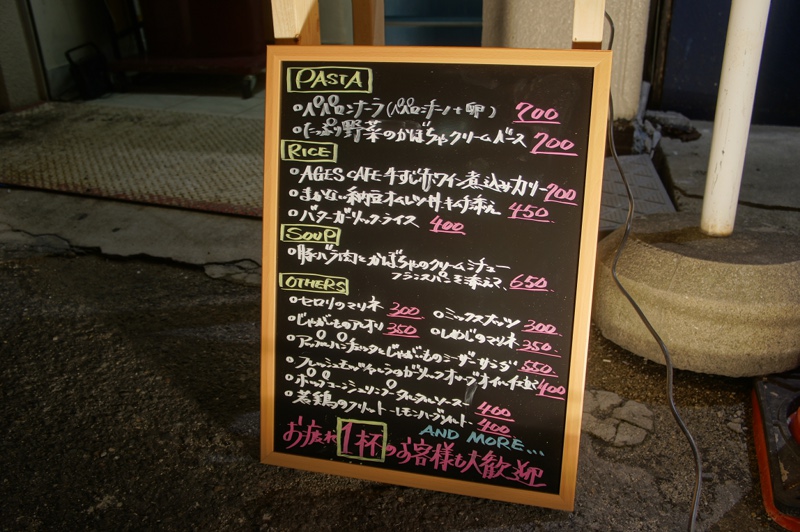 PASTA
○ペペロンナーラ(ペペロンチーノ+卵) 700
○たっぷり野菜のかぼちゃクリームベース 700
RICE
○AGES CAFE 牛すじ赤ワイン煮込みカリー 700
○まかない納豆オムレツ丼 キムチ添え 450
○バターガーリックライス 400
SOUP
○豚バラ肉とかぼちゃのクリームシチュー
フランスパンを添えて、 650
OTHERS
○セロリのマリネ 300 ○ミックスナッツ 300
○じゃがいものアイオリ 350 ○しめじのマリネ 350
○アップルパンチェッタとじゃがいものシーザーサラダ 550
○フレッシュモッツァレラのガーリックオリーブオイル仕立 400
○ポップコーンシュリンプ タルタルソース 400
○若鶏のフリット レモンハーブソルト 400
AND MORE...
お疲れ1杯のお客様も大歓迎